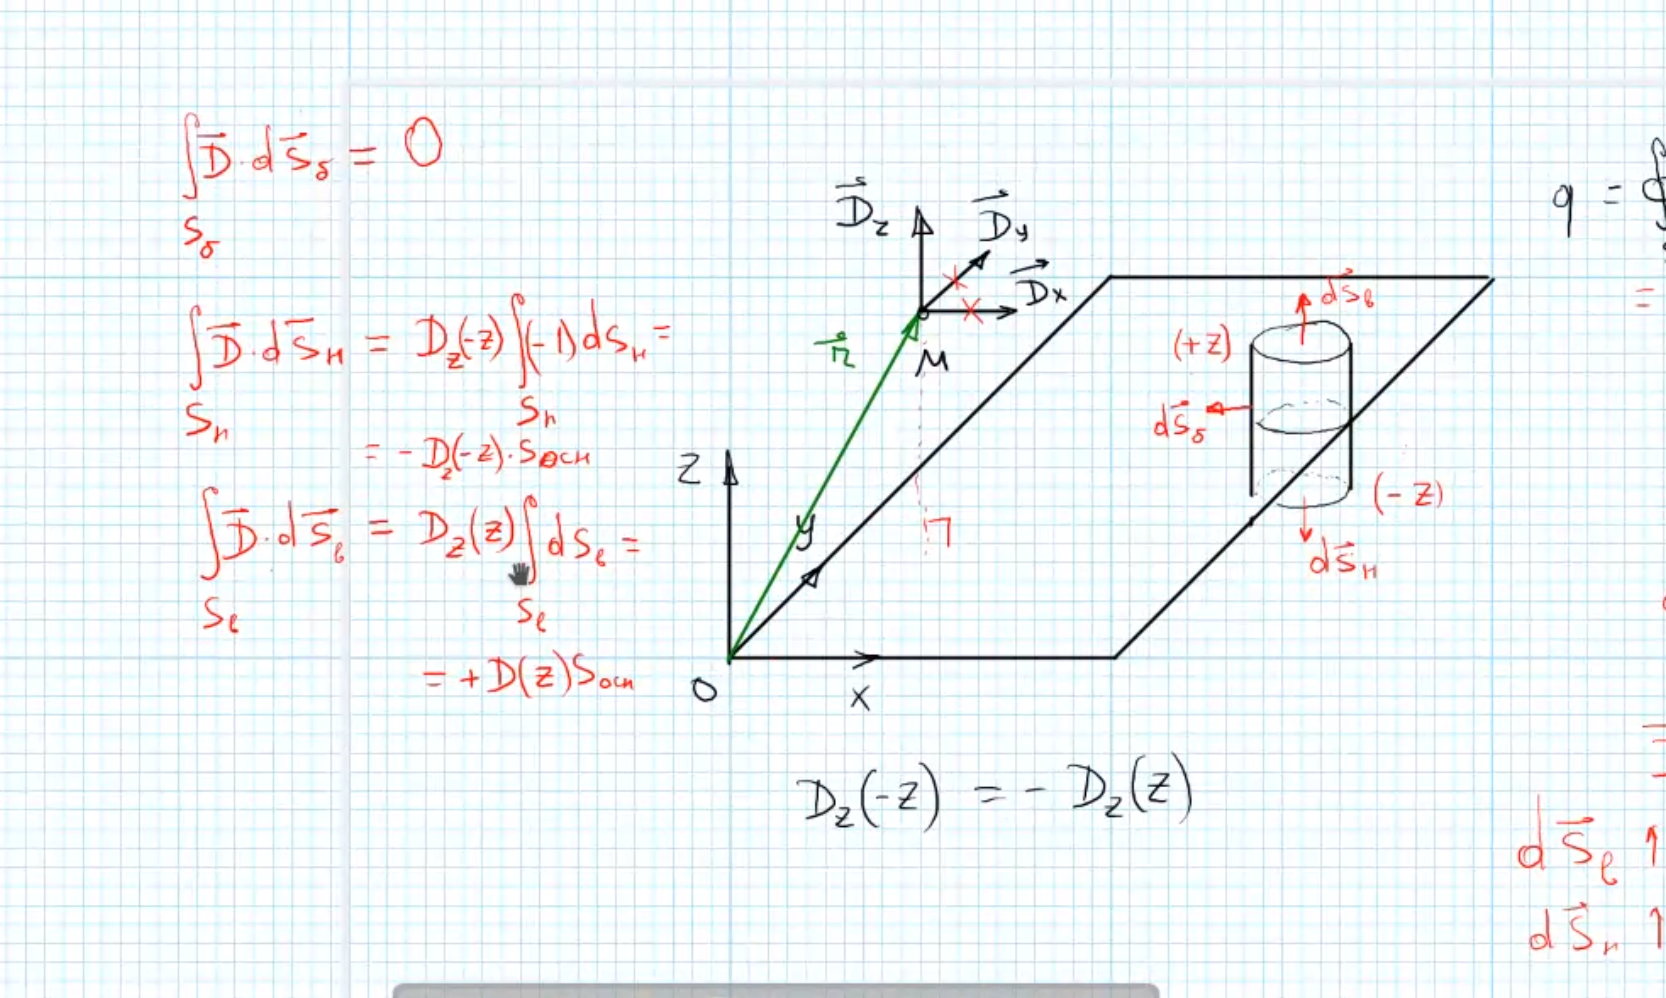 ∫ D⃗·dS⃗б = 0
Sб
∫ D⃗·dS⃗н = Dz(-z) ∫ (-1) dSн =
Sн Sн
= - Dz(-z)·Sосн
∫ D⃗·dS⃗в = Dz(z) ∫ dSв =
Sв Sв
= + D(z) Sосн
D⃗z
D⃗y
D⃗x
r⃗
M
Z
y
П
O
X
dS⃗в
(+z)
dS⃗б
(-z)
dS⃗н
Dz(-z) = - Dz(z)
q = ∮
=
dS⃗в ↑
dS⃗н ↑